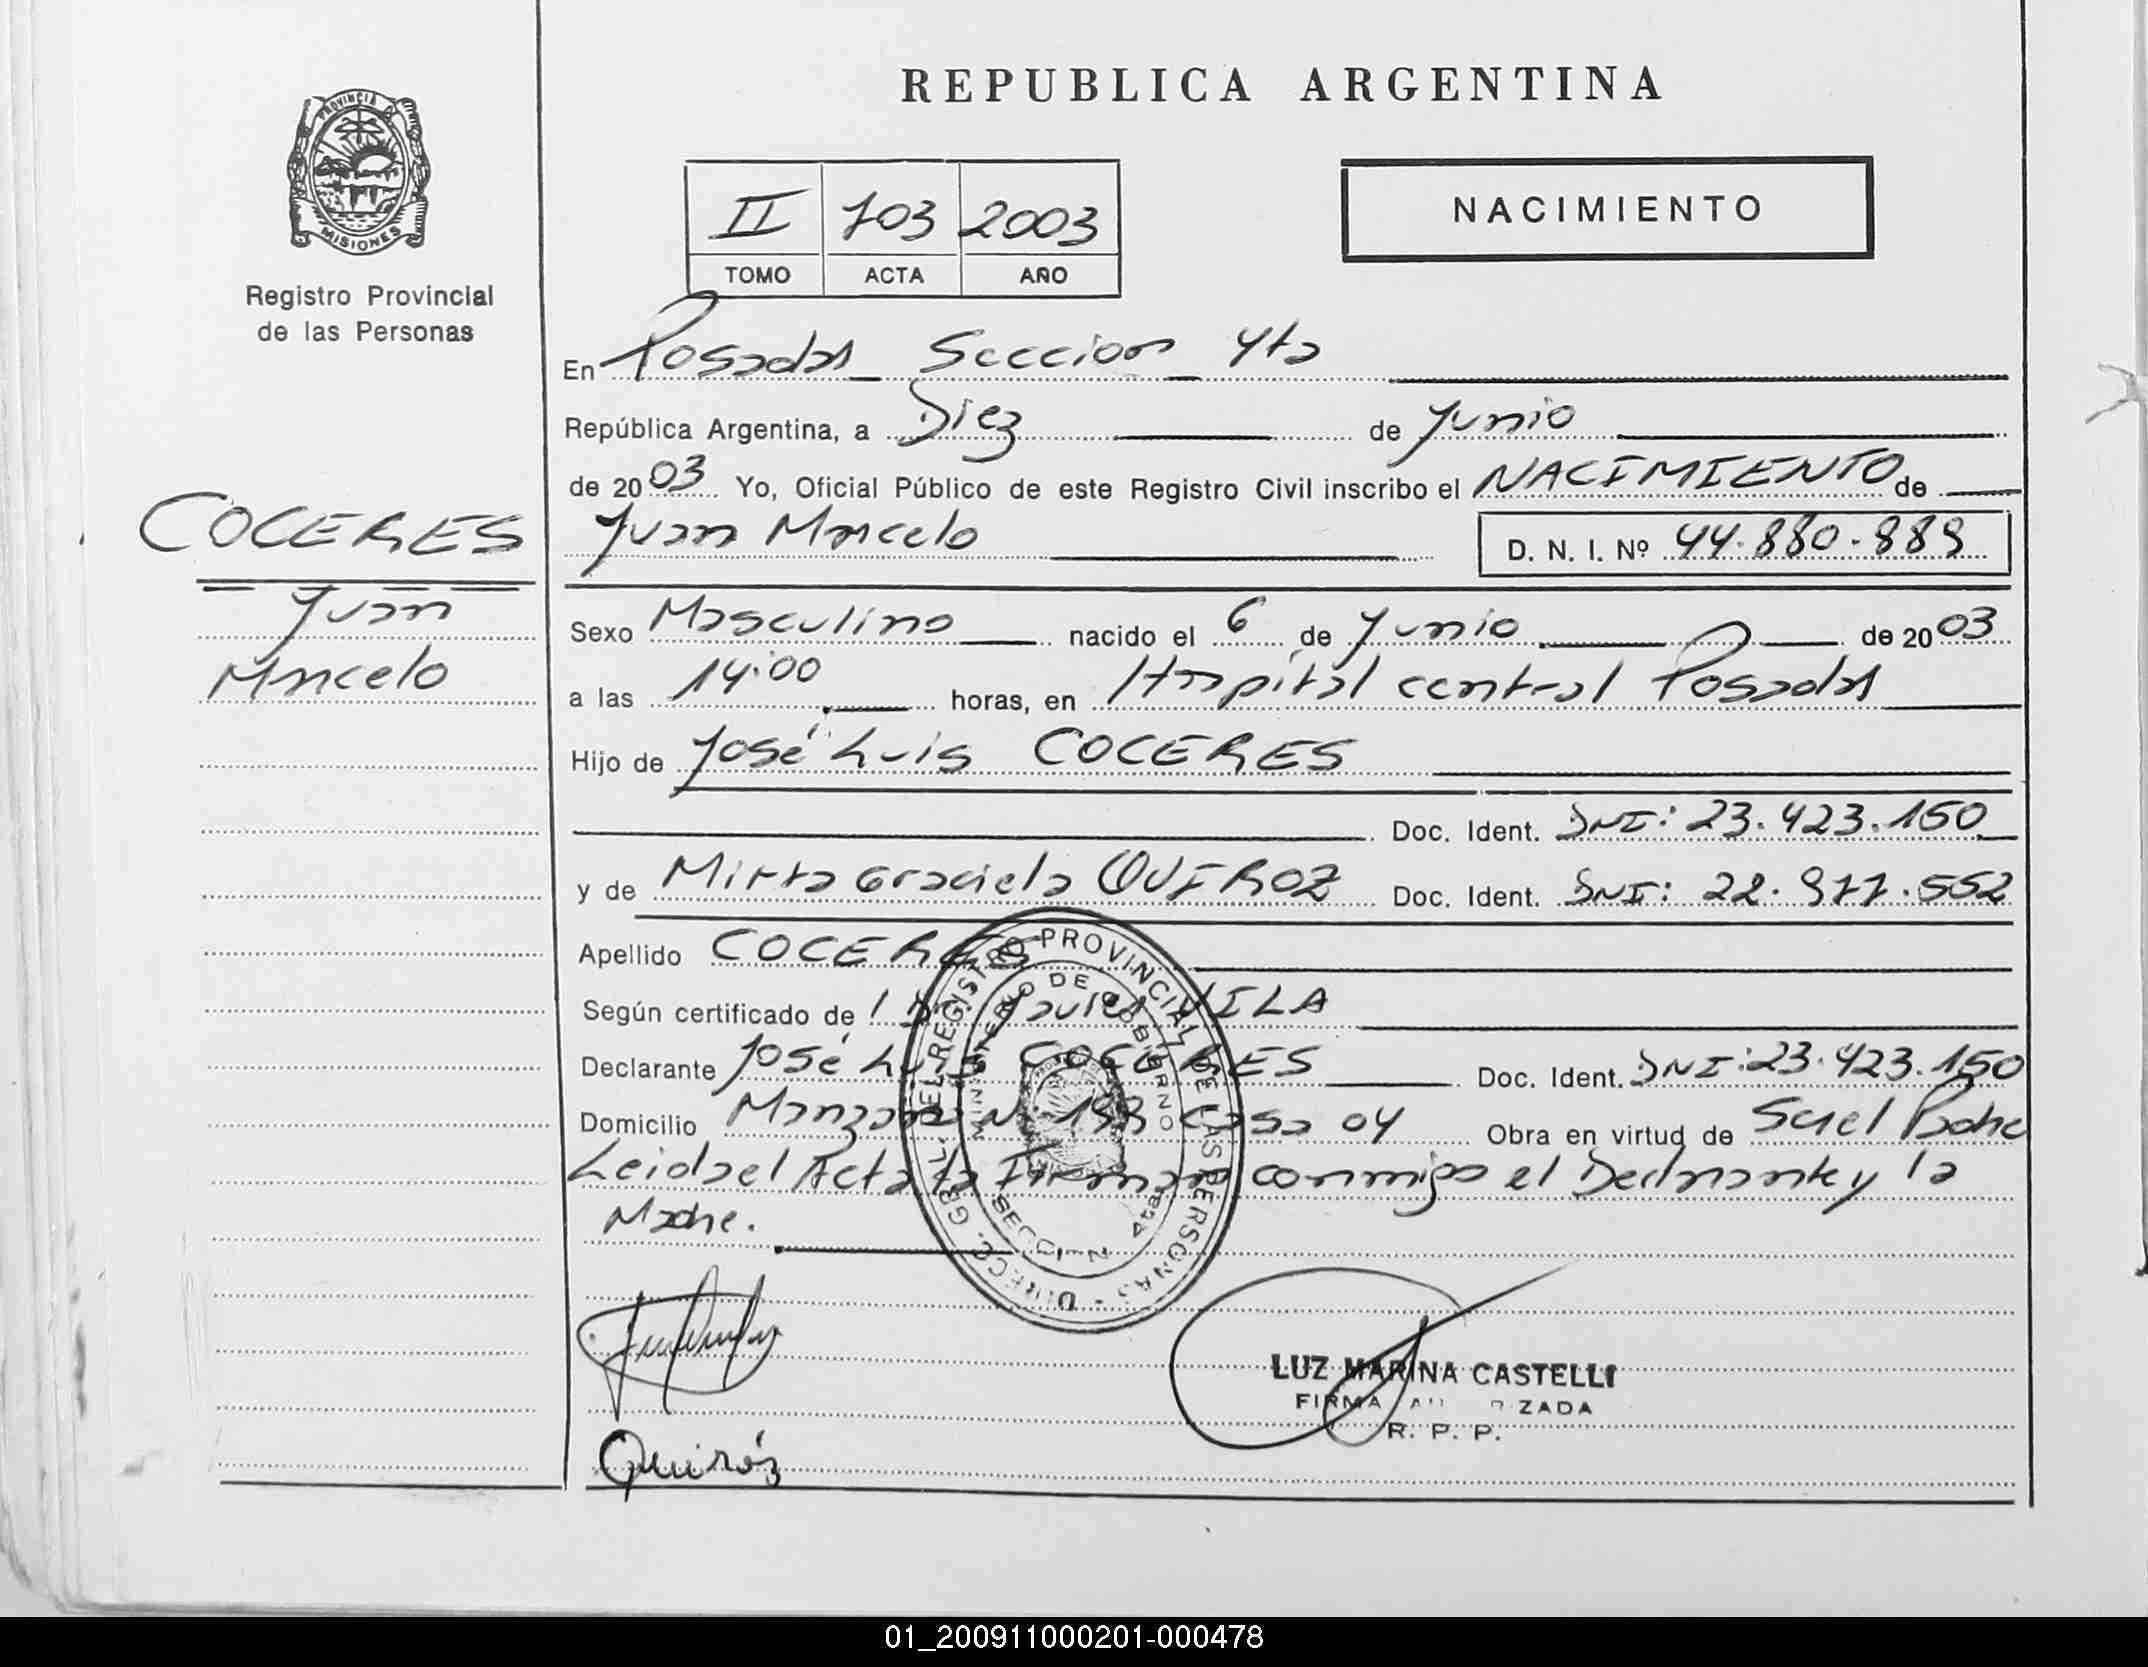 REPUBLICA ARGENTINA
PROVINCIA DE MISIONES
Registro Provincial
de las Personas
II 703 2003
TOMO ACTA AÑO
NACIMIENTO
En Posadas Seccion 4ta
República Argentina, a Diez de Junio
de 2003 Yo, Oficial Público de este Registro Civil inscribo el NACIMIENTO de
COCERES
Juan Marcelo D. N. I. Nº 44.880.889
Juan
Marcelo
Sexo Masculino nacido el 6 de Junio de 2003
a las 14:00 horas, en Hospital central Posadas
Hijo de José Luis COCERES
Doc. Ident. DNI: 23.423.150
y de Mirta Graciela QUIROZ Doc. Ident. DNI: 22.977.552
Apellido COCERES
Según certificado de Javier VILA
Declarante José Luis COCERES Doc. Ident. DNI: 23.423.150
Domicilio Manzana N 198 casa 04 Obra en virtud de Ser el Padre
Leida el Acta la Firman conmigo el Declarante y la
Madre.
DIRECC. GRAL. DEL REGISTRO PROVINCIAL DE LAS PERSONAS
MINISTERIO DE GOBIERNO
SECCION 4ta
LUZ MARINA CASTELLI
FIRMA AUTORIZADA
R. P. P.
Quiróz
01_200911000201-000478